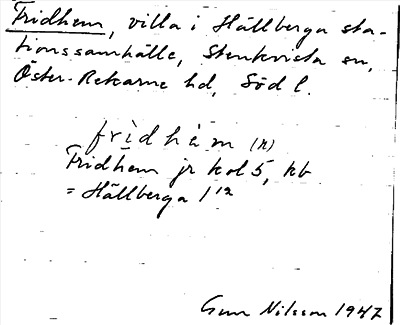 Fridhem, villa i Hällberga sta-
tionssamhälle, Stenkvista sn,
Öster-Rekarne hd, Söd l.
fridhèm (n)
Fridhem jr kol 5, kb
= Hällberga 1¹²
Gun Nilsson 1947